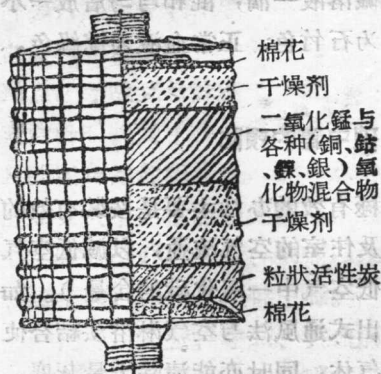 棉花
干燥剂
二氧化錳与
各种(銅、鈷
、鎳、銀)氧
化物混合物
干燥剂
粒狀活性炭
棉花